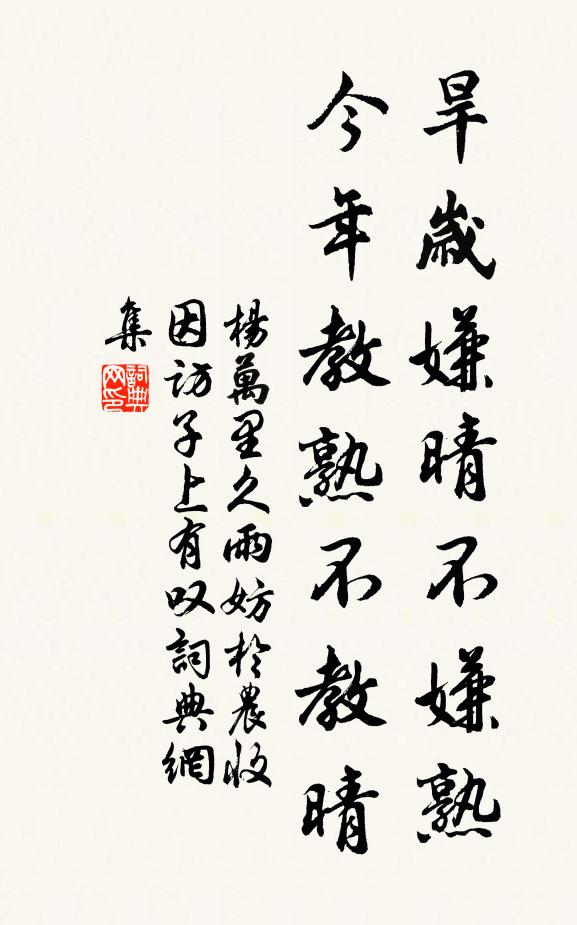 旱歲嫌晴不嫌熟
今年教熟不教晴
楊萬里久雨妨於農收
因訪子上有叹詞典網
集
詞典
网印